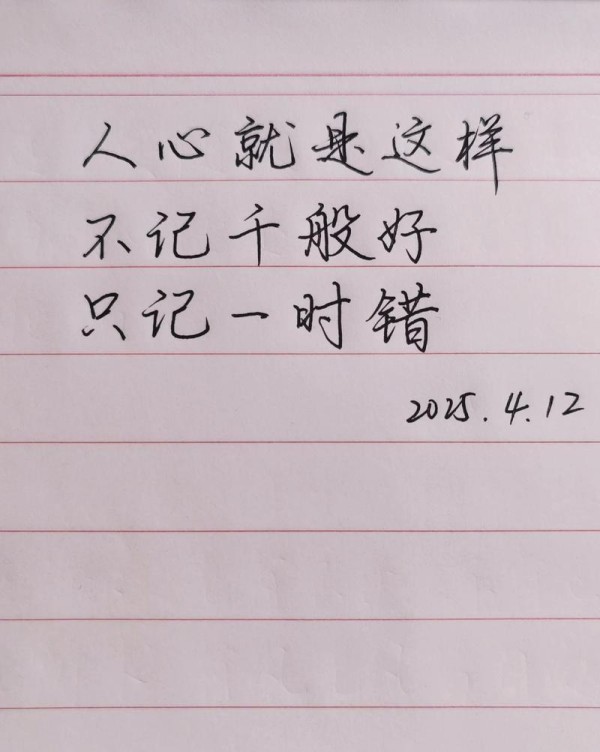 人心就是这样
不记千般好
只记一时错
2025.4.12